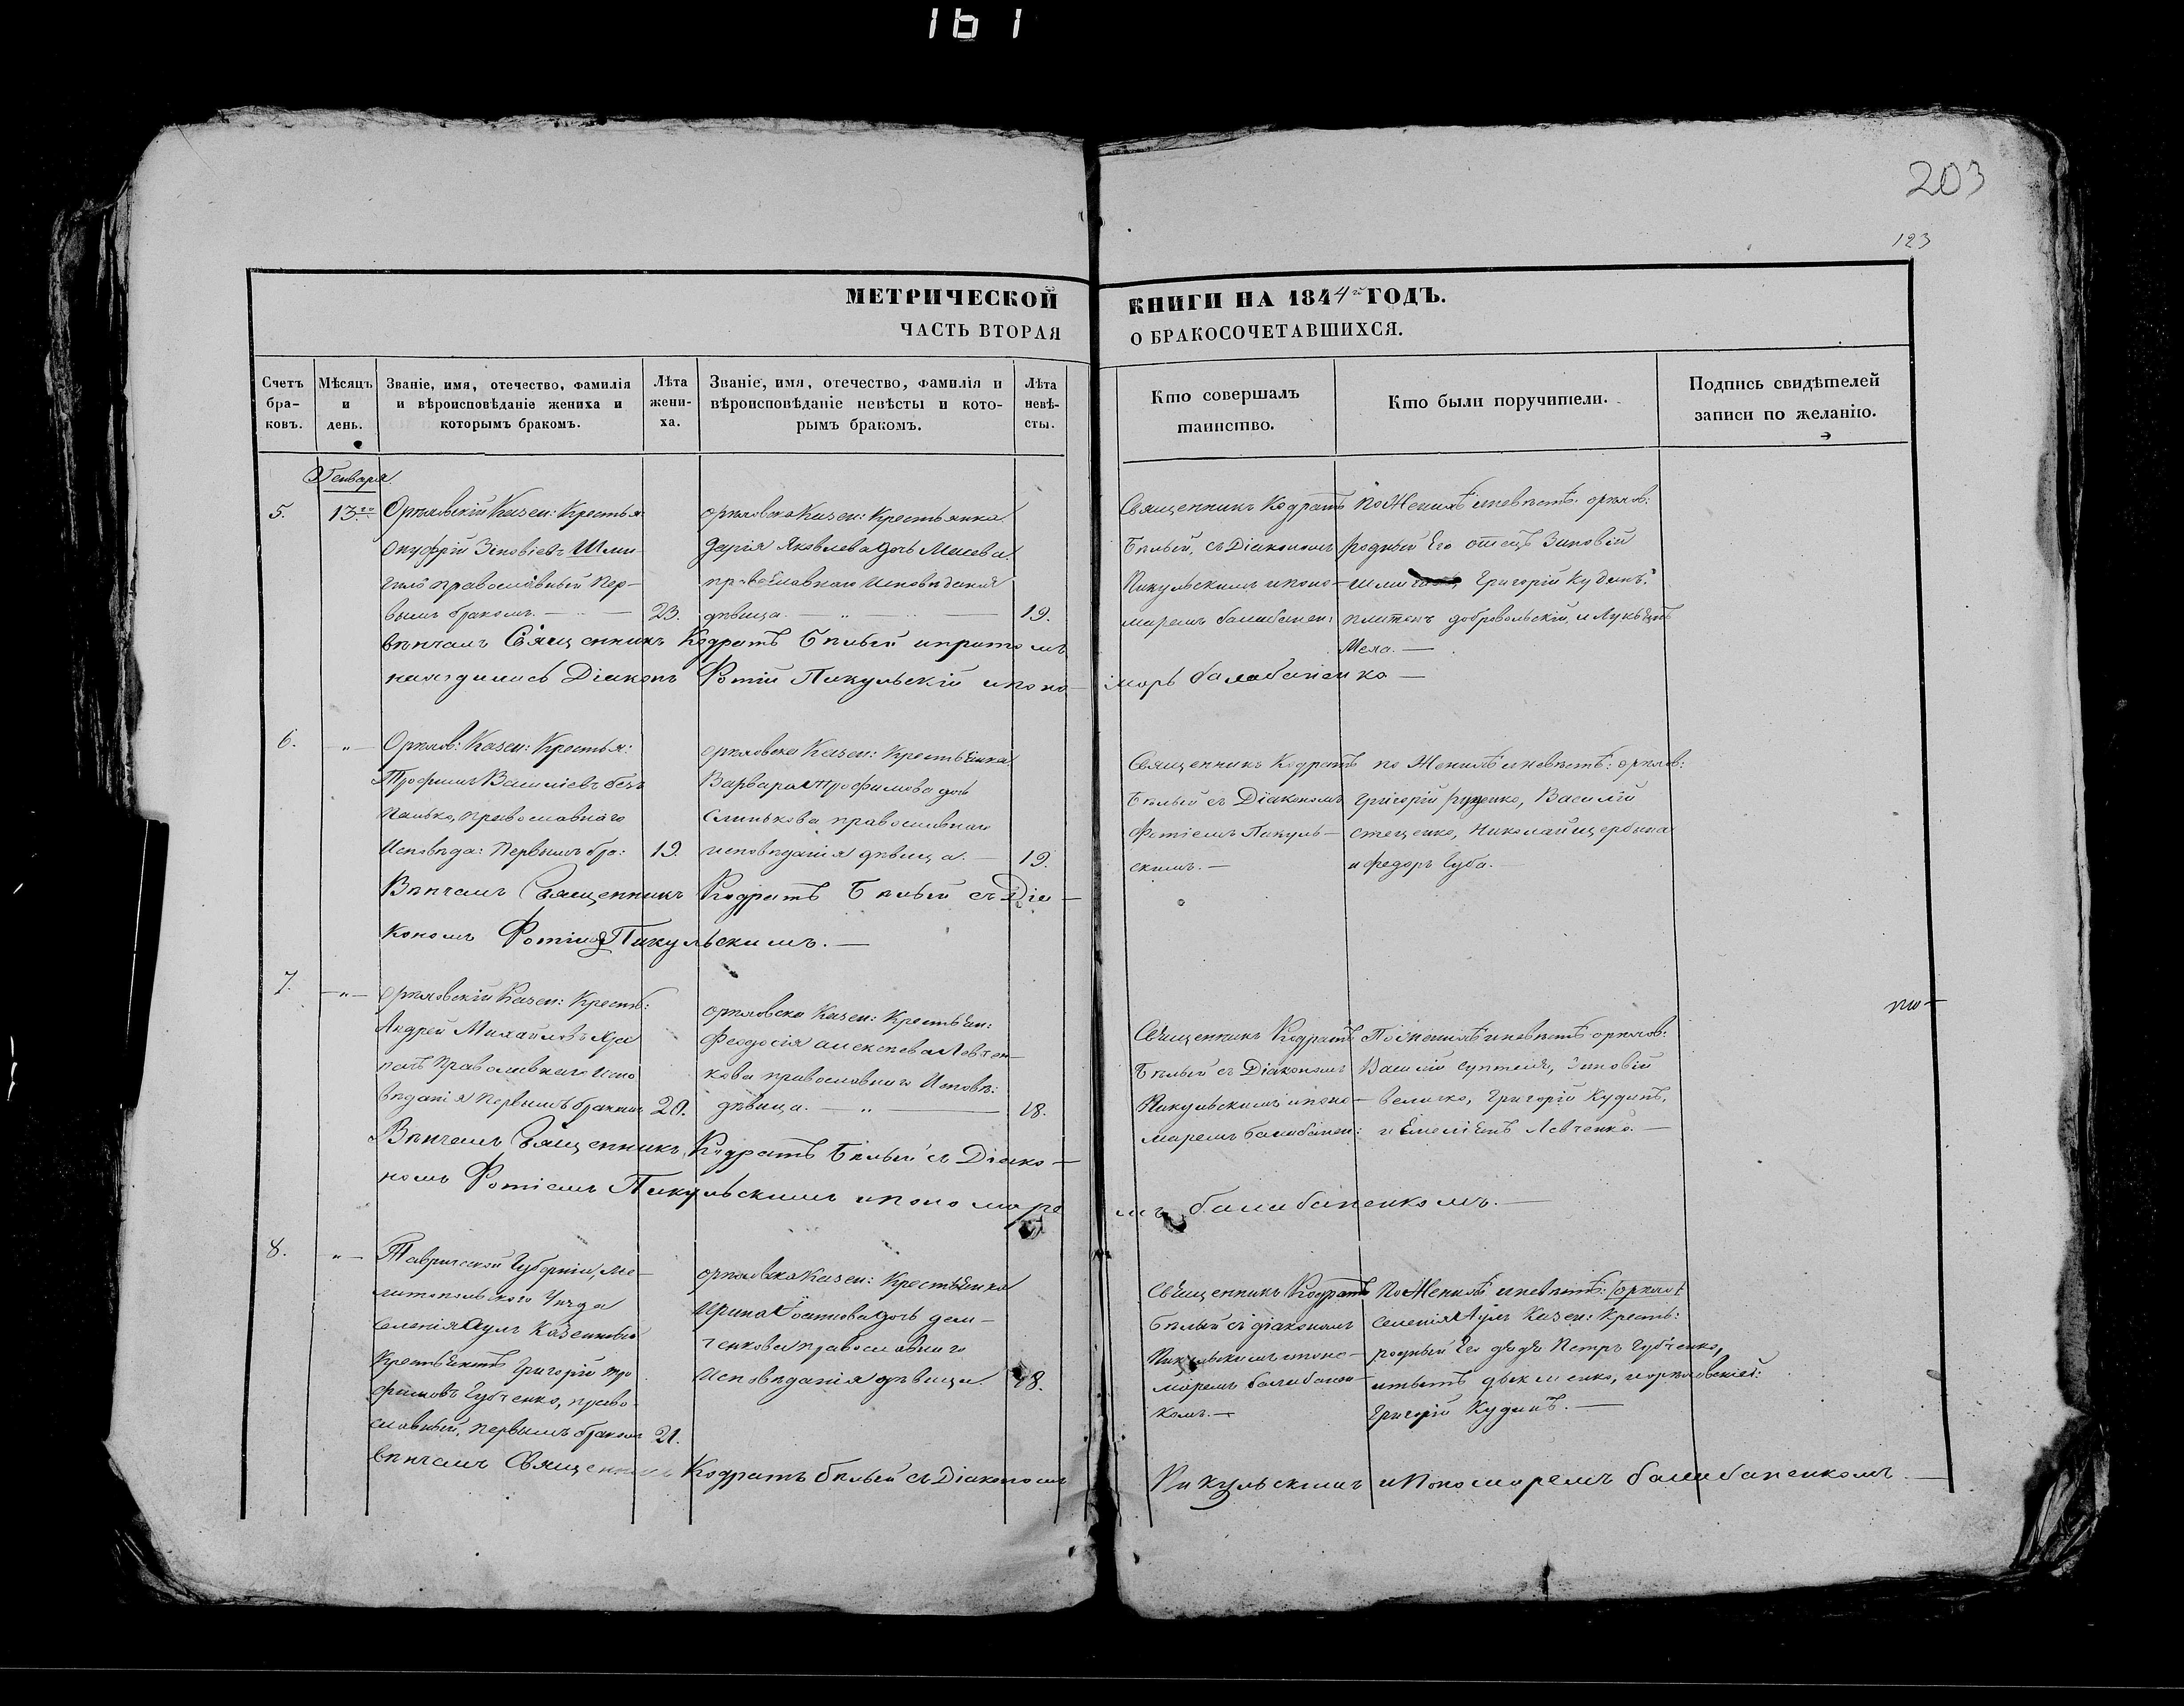 161
203
123
МЕТРИЧЕСКОЙ КНИГИ НА 1844й ГОДЪ.
ЧАСТЬ ВТОРАЯ О БРАКОСОЧЕТАВШИХСЯ.
Счетъ бра-ковъ.
Мѣсяцъ и день.
Званіе, имя, отечество, фамилія и вѣроисповѣданіе жениха и которымъ бракомъ.
Лѣта жени-ха.
Званіе, имя, отечество, фамилія и вѣроисповѣданіе невѣсты и кото-рымъ бракомъ.
Лѣта невѣ-сты.
Кто совершалъ таинство.
Кто были поручители.
Подпись свидѣтелей записи по желанію.
Генваря
5.
13го
Орѣловскій Казен: Крестья:
Онуфрій Зіновіевъ
православный Пер-
вымъ бракомъ.
23.
орѣловска Казен: Крестьянка
Яковлева дочь
православнаго Исповѣданія
дѣвица
19.
Священникъ Кодратъ
Бѣлый, съ Діакономъ
Пикульскимъ и поно-
маремъ балабанен:
По Женихѣ и невѣстѣ: орѣлов:
родный Его отецъ Зиновій
Григорій Кудинъ
добровольскій, и
вѣнчалъ Священникъ Кодратъ Бѣлый и при томъ
находились Діаконъ Фотій Пикульскій и поно-
марь балабаненко
6.
Орѣлов: Казен: Крестья:
Трофимъ Василіевъ
православнаго
Исповѣда: Первымъ бра:
19.
орѣловска Казен: Крестьянка
Варвара Трофимова дочь
православнаго
исповѣданія дѣвица.
19.
Священникъ Кодратъ
Бѣлый съ Діакономъ
Фотіемъ Пикуль-
скимъ.
по Женихѣ и невѣстѣ: орѣлов:
Григорій Руденко, Василій
стеценко, Николай щербина
и федоръ Губа.
Вѣнчалъ Священникъ Кодратъ Бѣлый съ Діа-
кономъ Фотіемъ Пикульскимъ.
7.
орѣловскій Казен: Кресть:
Андрей Михайловъ
Православнаго Испо
вѣданія Первымъ бракомъ
20.
орѣловска Казен: Крестьян:
Феодосія алексѣева Левчен-
кова православнаго Исповѣ:
дѣвица.
18.
Священникъ Кодратъ
Бѣлый съ Діакономъ
Пикульскимъ и поно-
маремъ балабанен:
По женихѣ и невѣстѣ орѣлов:
Василій Зиновій
величко, Григорій Кудинъ,
и Емеліянъ Левченко.
Вѣнчалъ Священникъ Кодратъ Бѣлый съ Діако-
номъ Фотіемъ Пикульскимъ и пономаре
мъ балабаненкомъ.
8.
Таврической Губерніи, Ме-
литопольского Уѣзда
Селенія Аулъ Казенный
Крестьянинъ Григорій Тро
фимовъ Губченко, право-
славный, первымъ бракомъ
21.
орѣловска Казен: Крестьянка
Ирина дочь дем-
ченкова православнаго
Исповѣданія дѣвица
18.
Священникъ Кодратъ
бѣлый съ діакономъ
Пикульскимъ и поно-
маремъ балабанен
комъ.
По Женихѣ и невѣстѣ:
селенія Аулъ Казен: Кресть:
родный Его дядя Петръ Губченко,
и орѣловскіе:
Григорій Кудинъ.
вѣнчалъ Священникъ Кодратъ бѣлый съ Діакономъ
Пикульскимъ и Пономаремъ балабаненкомъ.